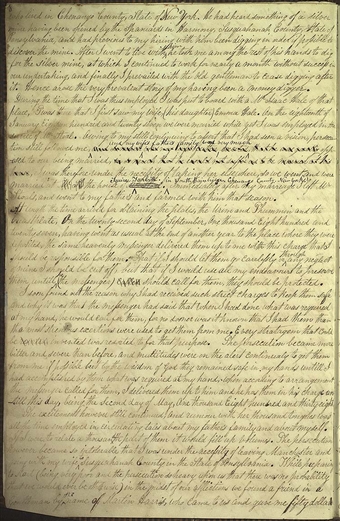 in Chenango County, State of New York. He had heard something of a silver
mine having been opened by the Spaniards in Harmony, Susquehanna County, State of
and had previous to my hiring with him been digging in order if possible
discover the mine. After I went to live with him he took me among the rest of his hands to dig
for the silver mine, at which I continued to work for nearly a month without success in
our undertaking, and finally I prevailed with the old gentleman to cease digging after
it. Hence arose the very prevalent story of my having been a money digger.
During the time that I was thus employed I was put to board with a Mr Isaac Hale of that
place, it was there that I first saw my wife, (his daughter) Emma Hale. On the eighteenth of
hundred and twenty seven we were married while yet I was employed in the
Owing to my still continuing to assert that I had seen a vision, persecution
still followed me, and my wife's father's family were very much
opposed to our being married,
was therefore under the necessity of taking her elsewhere so we went and were
married at the house of in South Bainbridge, Chenango County, New York.
Immediately after my marriage I left Mr
and went to my father's and farmed with him that season.
At length the time arrived for obtaining the plates, the Urim and Thummim and the
On the twenty second day of September, One thousand Eight hundred and
twenty seven, having went as usual at the end of another year to the place where they were
deposited, the same heavenly messenger delivered them up to me with this charge that I
should be responsible for them. That if I should let them go carelessly or through any neglect
of mine I should be cut off, but that if I would use all my endeavours to preserve
them, until he (the messenger) should call for them, they should be protected.
I soon found out the reason why I had received such strict charges to keep them safe
and why it was that the messenger had said that when I had done what was required
at my hand, he would call for them, for no sooner was it known that I had them than
the most strenuous exertions were used to get them from me. Every stratagem that could
be invented was resorted to for that purpose. The persecution became more
bitter and severe than before, and multitudes were on the alert continually to get them
from me if possible but by the wisdom of God they remained safe in my hands until I
had accomplished by them what was required at my hand, when according to arrangement
the messenger called for them, I delivered them up to him and he has them in his charge
until this day, being the Second day of May, One thousand Eight hundred and thirty eight
The excitement however still continued, and rumour with her thousand tongues was
all the time employed in circulating tales about my father's family and about myself.
If I was to relate a thousandth part of them it would fill up volumes. The persecution
became so intolerable that I was under the necessity of leaving Manchester and
going with my wife to Susquehanah County in the State of Pensylvania. While preparing
to start (being very poor and the persecution so heavy upon us that there was no probability
that we would ever be otherwise) in the midst of our afflictions we found a friend in a
name of Martin Harris, who came to us and gave me fifty dollars